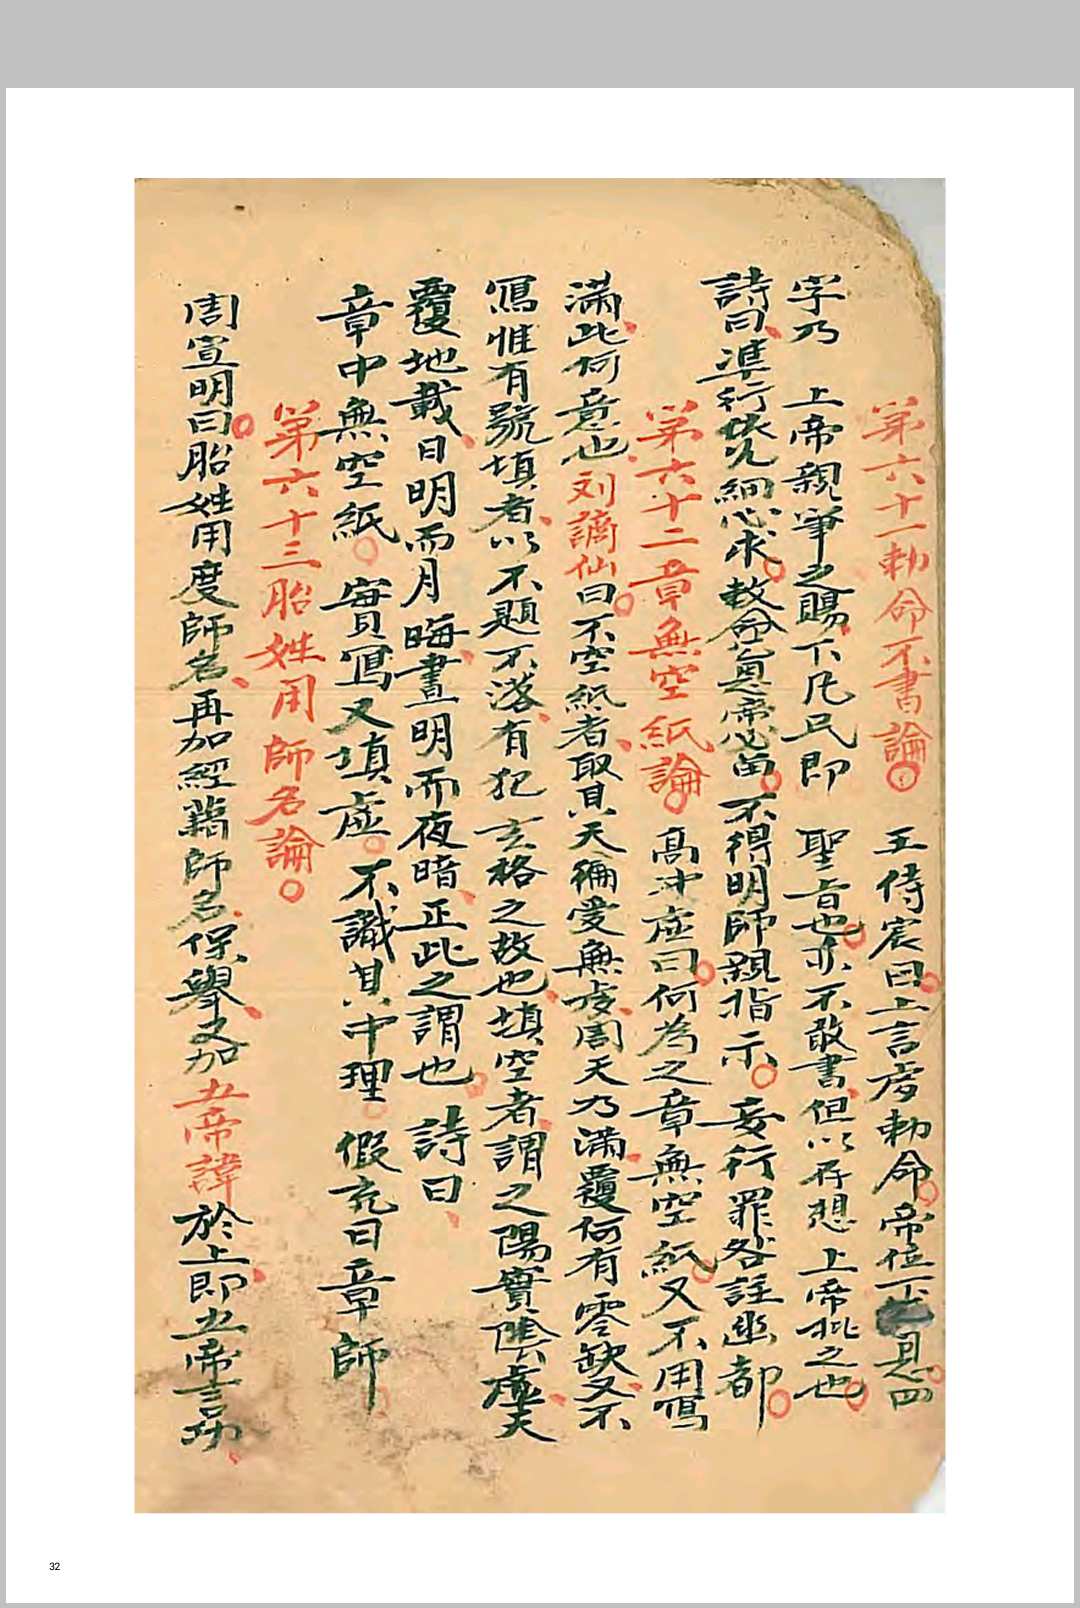 第六十一勅命不書論 王侍宸曰上言處勅命帝位下是四
字乃 上帝親筆之賜下凡民即 聖旨也亦不敢書但以存想上帝批之也
詩曰準行依允細心求敕命宜思帝心留不得明師親指示妄行罪咎註幽都
第六十二章無空紙論 高冲虛曰何為之章無空紙又不用寫
滿此何意也刘謫仙曰不空紙者取其天徧愛無處周天乃滿覆何有零缺又不
寫惟有號填者以不題不落有犯玄格之故也填空者謂之陽實陰虛天
覆地載日明而月晦晝明而夜暗正此之謂也 詩曰
章中無空紙 實寫又填虛 不識其中理 假充曰章師
第六十三胎姓用師名論
周宣明曰胎姓用度師名再加經籍師名保舉又加五帝諱於上即五帝言功
32